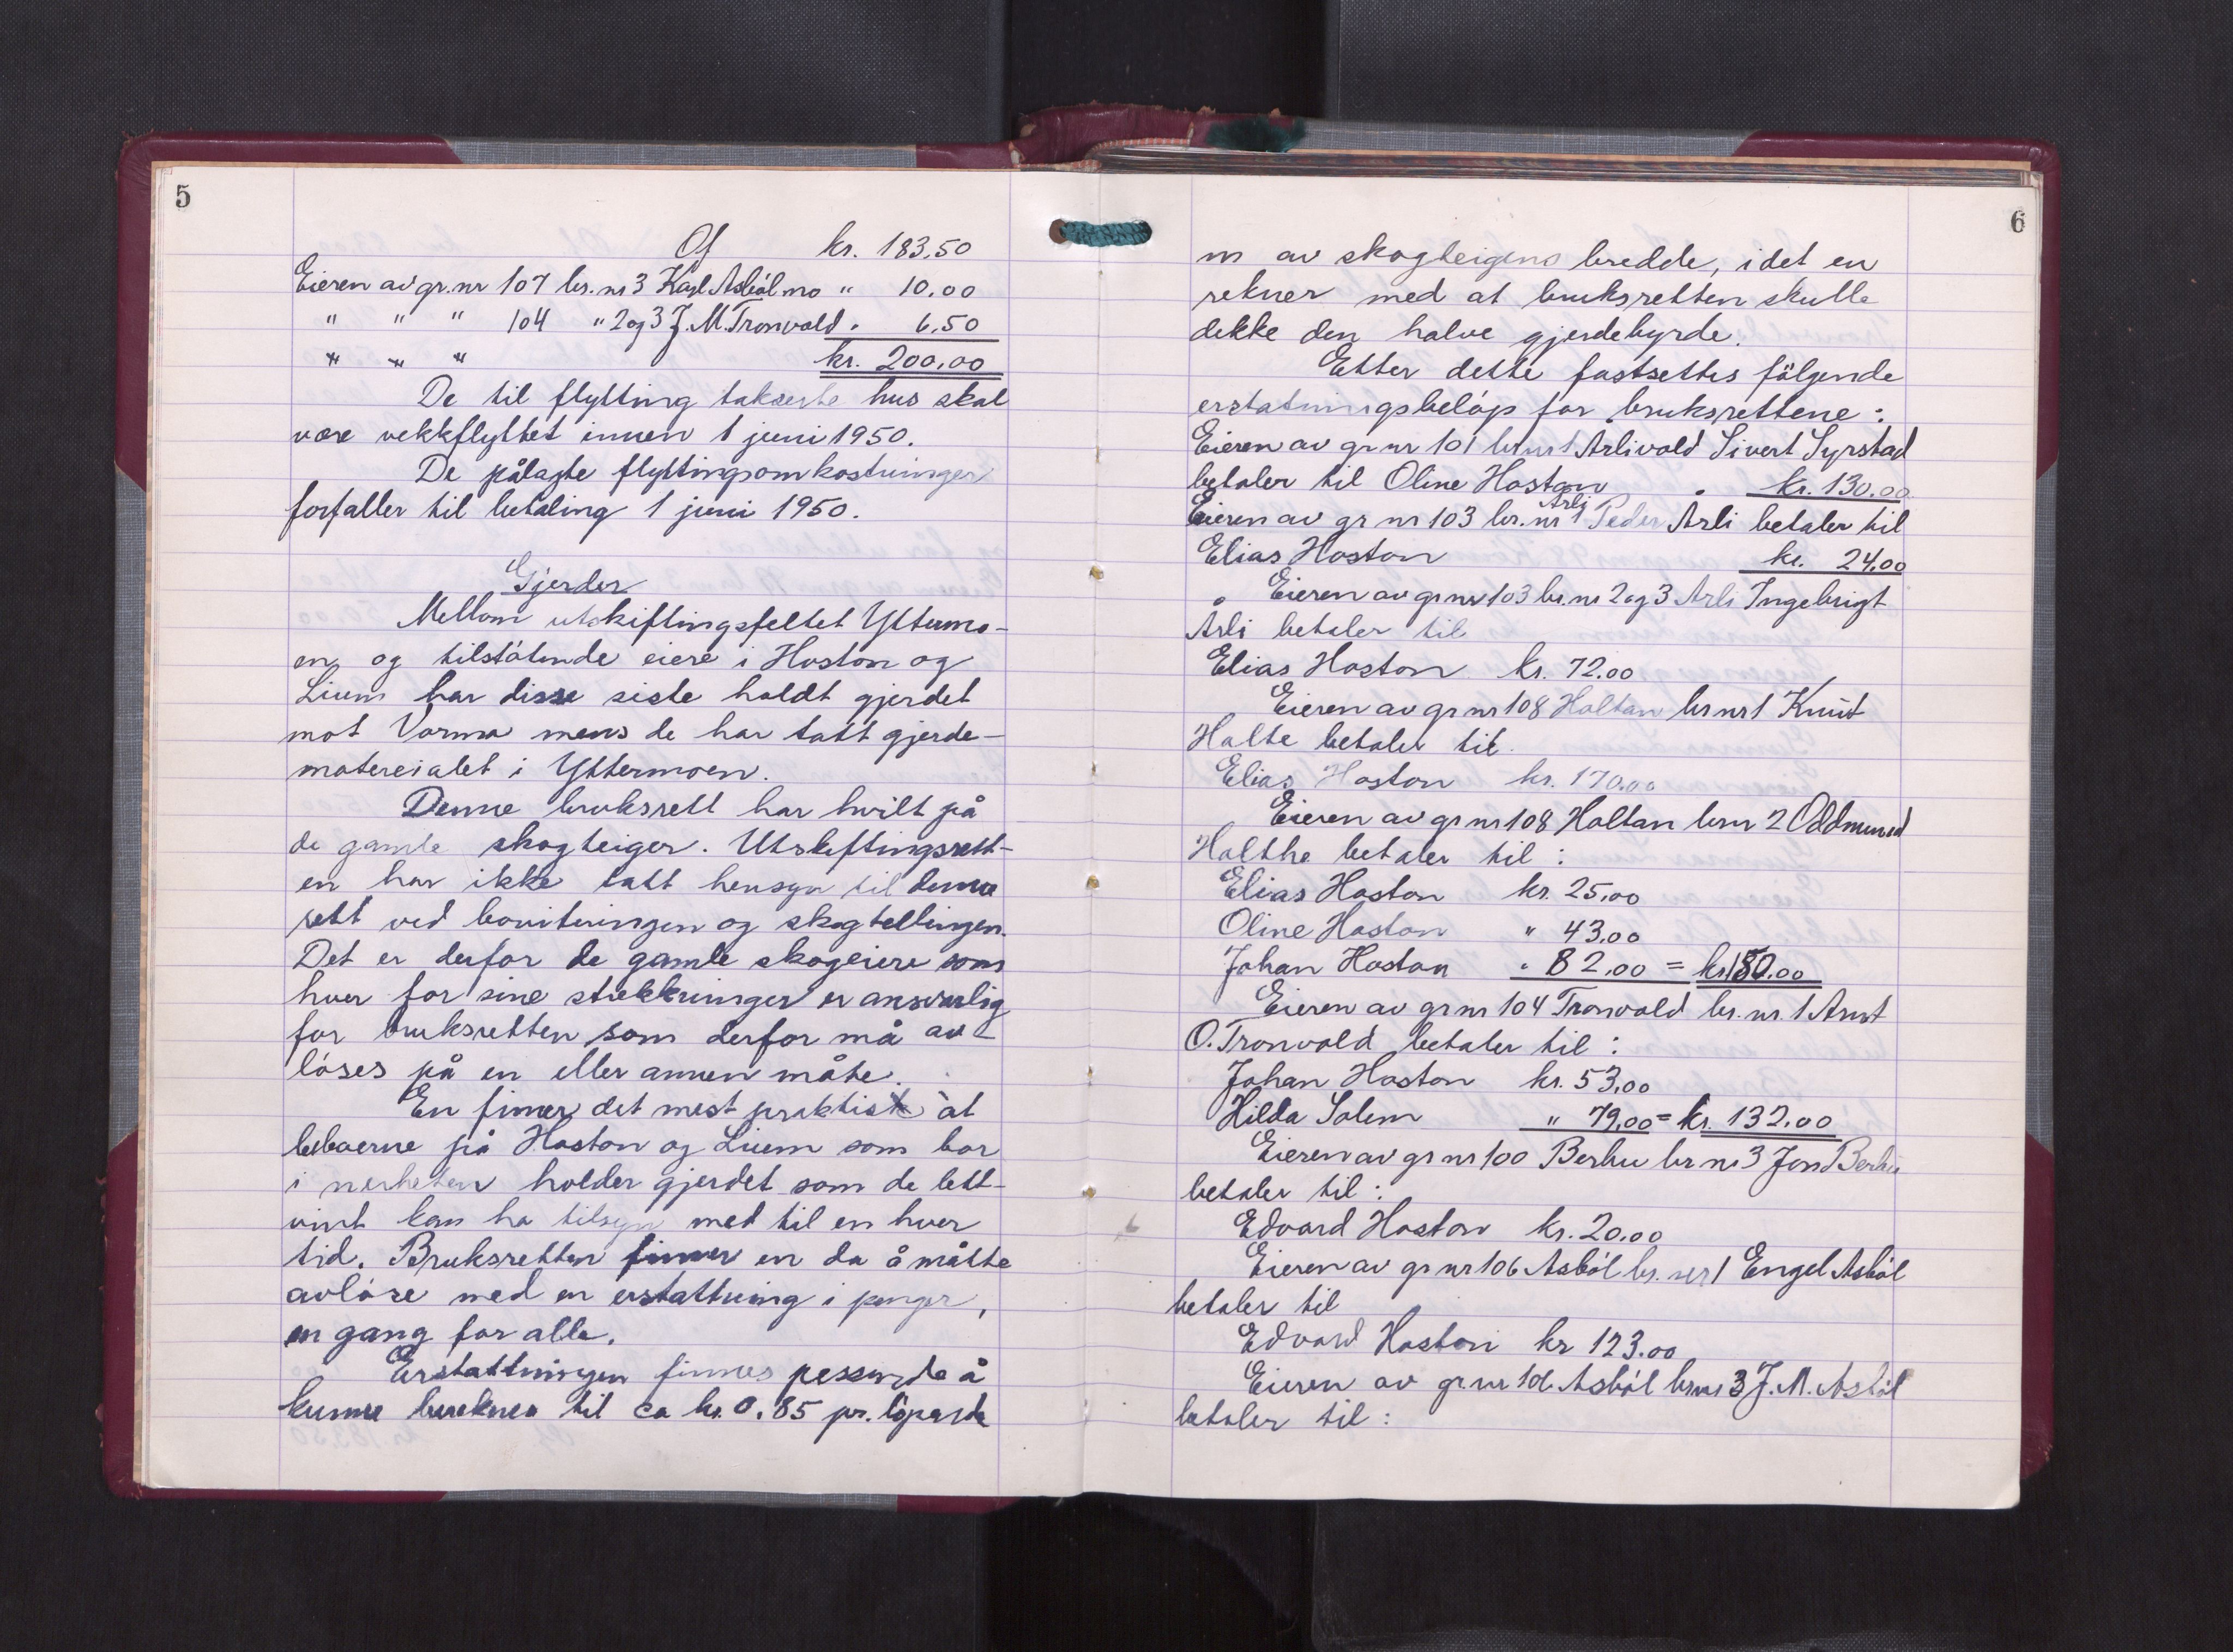 5
Of kr. 183,50
Eieren av gr.nr 107 br.nr 3 Karl Asbölmo " 10,00
" " " 104 " 2 og 3 J. M. Tronvold. 6,50
" " " kr. 200,00
De til flytting takserte hus skal
være vekkflyttet innen 1 juni 1950.
De pålagte flyttingsomkostninger
forfaller til betaling 1 juni 1950.
Gjerder
Mellom utskiftingsfeltet Yttermo-
en og tilstötende eiere i Hoston og
Lium har disse siste holdt gjerdet
mot Vorma mens de har tatt gjerde-
matereialet i Yttermoen.
Denne bruksrett har hvilt på
de gamle skogteiger. Utskiftingsrett-
en har ikke tatt hensyn til denne
rett ved boniteringen og skogtellingen.
Det er derfor de gamle skogeiere som
hver for sine strekkninger er ansvarlig
for bruksretten som derfor må av-
löses på en eller annen måte.
En finner det mest praktisk at
beboerne på Hoston og Lium som bor
i nerheten holder gjerdet som de lett-
vint kan ha tilsyn med til en hver
tid. Bruksretten finner en da å måtte
avlöse med en erstattning i penger,
en gang for alle.
Erstattningen finnes passende å
kunne bereknes til ca kr. 0.85 pr. löpende
6
m av skogteigens bredde, idet en
rekner med at bruksretten skulle
dekke den halve gjerdebyrde.
Etter dette fastsettes fölgende
erstatningsbelöp for bruksrettene:
Eieren av gr nr 101 br nr 1 Arlivold Sivert Syrstad
betaler til Oline Hoston . kr. 130.00
Eieren av gr nr 103 br. nr 1 Arli Peder Arli betaler til
Elias Hoston kr. 24.00
" Eieren av gr nr 103 br. nr 2 og 3 Arli Ingebrigt
Arli betaler til
Elias Hoston kr. 72.00
Eieren av gr nr 108 Holtan br nr 1 Knut
Holte betaler til
Elias Hoston kr. 170.00
Eieren av gr nr 108 Holtan br nr 2 Oddmund
Holthe betaler til:
Elias Hoston kr. 25,00
Oline Hoston " 43,00
Johan Hoston " 82,00 = kr 150.00
Eieren av gr nr 104 Tronvold br. nr. 1 Arnt
O. Tronvold betaler til:
Johan Hoston kr. 53,00
Hilda Solem " 79,00 = kr. 132.00
Eieren av gr nr 100 Berbu br nr 3 Jon Berbu
betaler til:
Edvard Hoston kr. 20.00
Eieren av gr nr 106 Asböl br. nr 1 Engel Asböl
betaler til
Edvard Hoston kr 123.00
Eieren av gr nr 106 Asböl br nr 3 J. M. Asböl
betaler til: